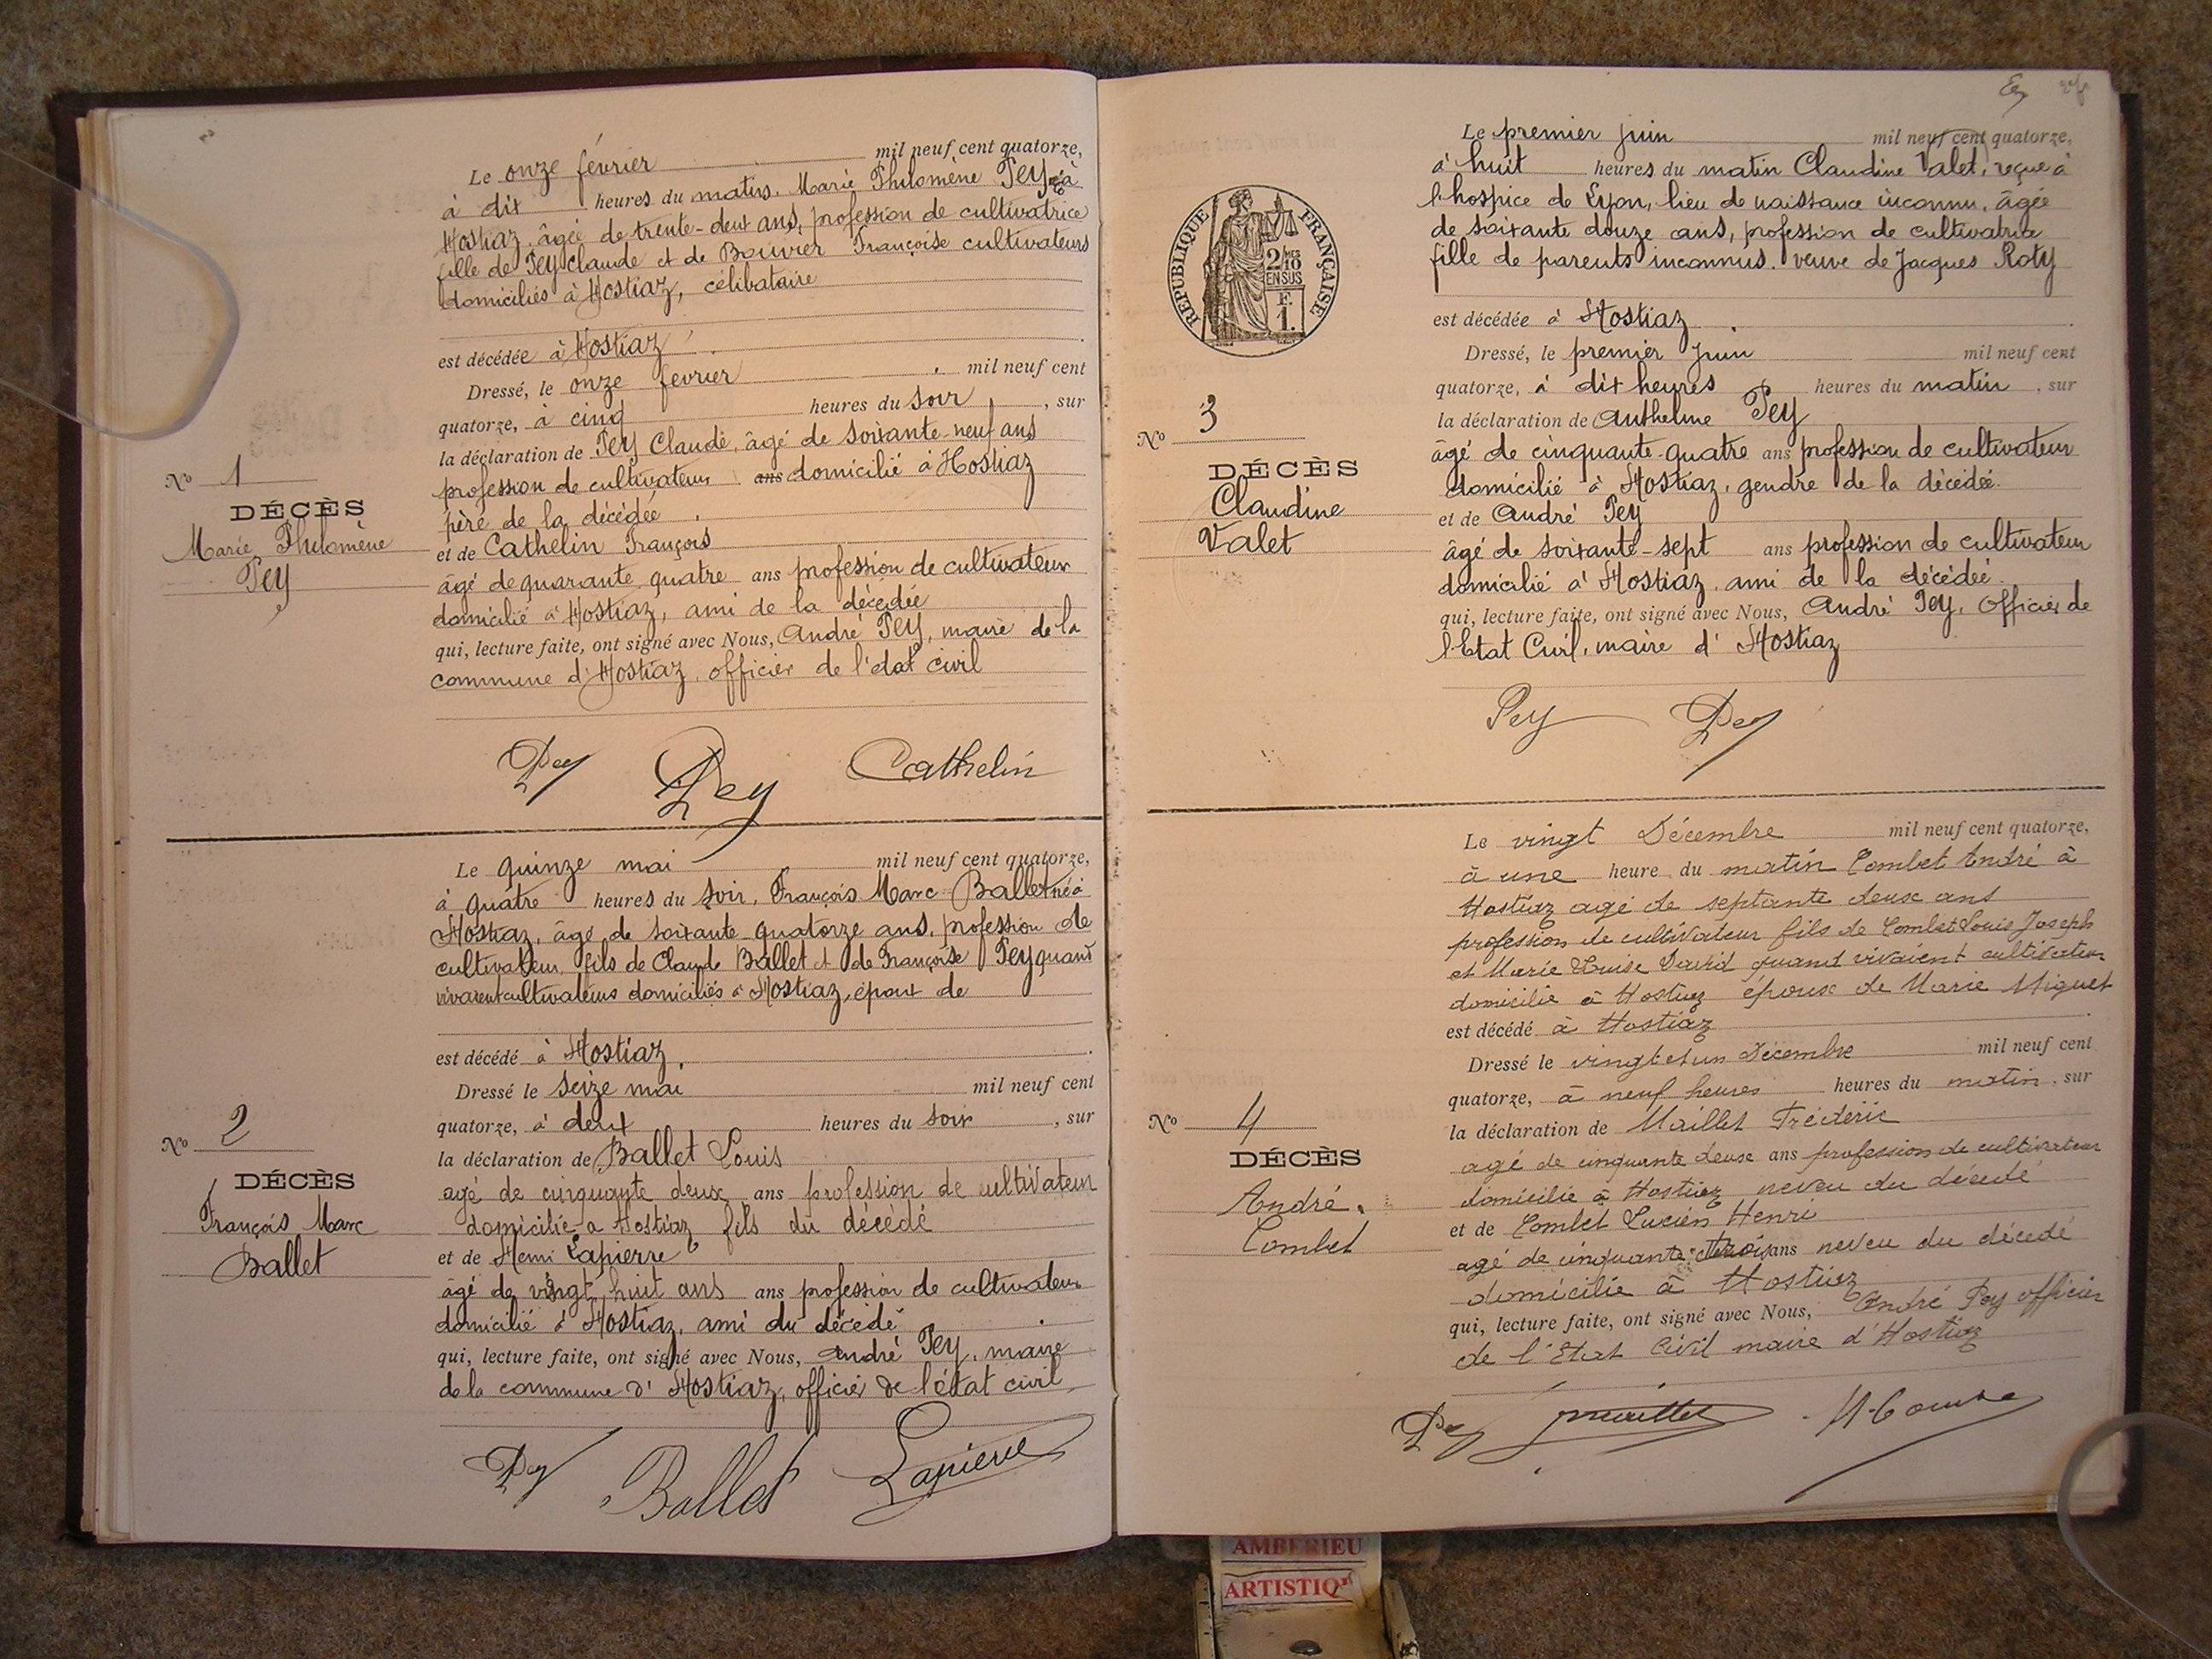 Le onze février mil neuf cent quatorze,
à dix heures du matin, Marie Philomène Pey née à
Hostiaz, âgée de trente-deux ans, profession de cultivatrice
fille de Pey Claude et de Bouvier Françoise cultivateurs
domiciliés à Hostiaz, célibataire
est décédée à Hostiaz
Dressé, le onze fevrier mil neuf cent
quatorze, à cinq heures du soir, sur
la déclaration de Pey Claude, âgé de soixante-neuf ans
profession de cultivateur ans domicilié à Hostiaz
père de la décédée
et de Cathelin François
âgé de quarante quatre ans profession de cultivateur
domicilié à Hostiaz, ami de la décédée
qui, lecture faite, ont signé avec Nous, André Pey, maire de la
commune d'Hostiaz, officier de l'état civil
Pey Pey Cathelin
No 1
DÉCÈS
Marie Philomène
Pey
Le quinze mai mil neuf cent quatorze,
à quatre heures du soir, François Marc Ballet né à
Hostiaz, âgé de soixante quatorze ans, profession de
cultivateur, fils de Claude Ballet et de Françoise Pey quand
vivaient cultivateurs domiciliés à Hostiaz, époux de
est décédé à Hostiaz.
Dressé le seize mai mil neuf cent
quatorze, à deux heures du soir, sur
la déclaration de Ballet Louis
agé de cinquante deux ans profession de cultivateur
domicilié a Hostiaz fils du décédé
et de Henri Lapierre
âgé de vingt huit ans ans profession de cultivateur
domicilié à Hostiaz, ami du décédé
qui, lecture faite, ont signé avec Nous, André Pey, maire
de la commune d'Hostiaz, officier de l'état civil
Pey Ballet Lapierre
No 2
DÉCÈS
François Marc
Ballet
Le premier juin mil neuf cent quatorze,
à huit heures du matin Claudine Valet, reçue à
l'hospice de Lyon, lieu de naissance inconnu, âgée
de soixante douze ans, profession de cultivatrice
fille de parents inconnus. veuve de Jacques Roty
est décédée à Hostiaz.
Dressé, le premier Juin mil neuf cent
quatorze, à dix heures heures du matin, sur
la déclaration de Anthelme Pey
âgé de cinquante-quatre ans profession de cultivateur
domicilié à Hostiaz, gendre de la décédée.
et de André Pey
âgé de soixante-sept ans profession de cultivateur
domicilié à Hostiaz, ami de la décédée.
qui, lecture faite, ont signé avec Nous, André Pey, Officier de
l'Etat Civil, maire d'Hostiaz
Pey Pey
RÉPUBLIQUE FRANÇAISE
2/10
EN SUS
F.
1.
No 3
DÉCÈS
Claudine
Valet
Le vingt Décembre mil neuf cent quatorze,
à une heure du matin Combet André à
Hostiaz agé de septante deux ans
profession de cultivateur fils de Combet Louis Joseph
et Marie Louise David quand vivaient cultivateur
domicilié à Hostiaz époux de Marie Miguet
est décédé à Hostiaz
Dressé le vingt et un Décembre mil neuf cent
quatorze, à neuf heures heures du matin, sur
la déclaration de Maillet Frédéric
agé de cinquante deux ans profession de cultivateur
domicilié à Hostiaz neveu du décedé
et de Combet Lucien Henri
agé de cinquante trois ans neveu du décedé
domicilié à Hostiaz
qui, lecture faite, ont signé avec Nous, André Pey officier
de l'Etat Civil maire d'Hostiaz
Pey Maillet
No 4
DÉCÈS
André
Combet
AMBERIEU
ARTISTIQ